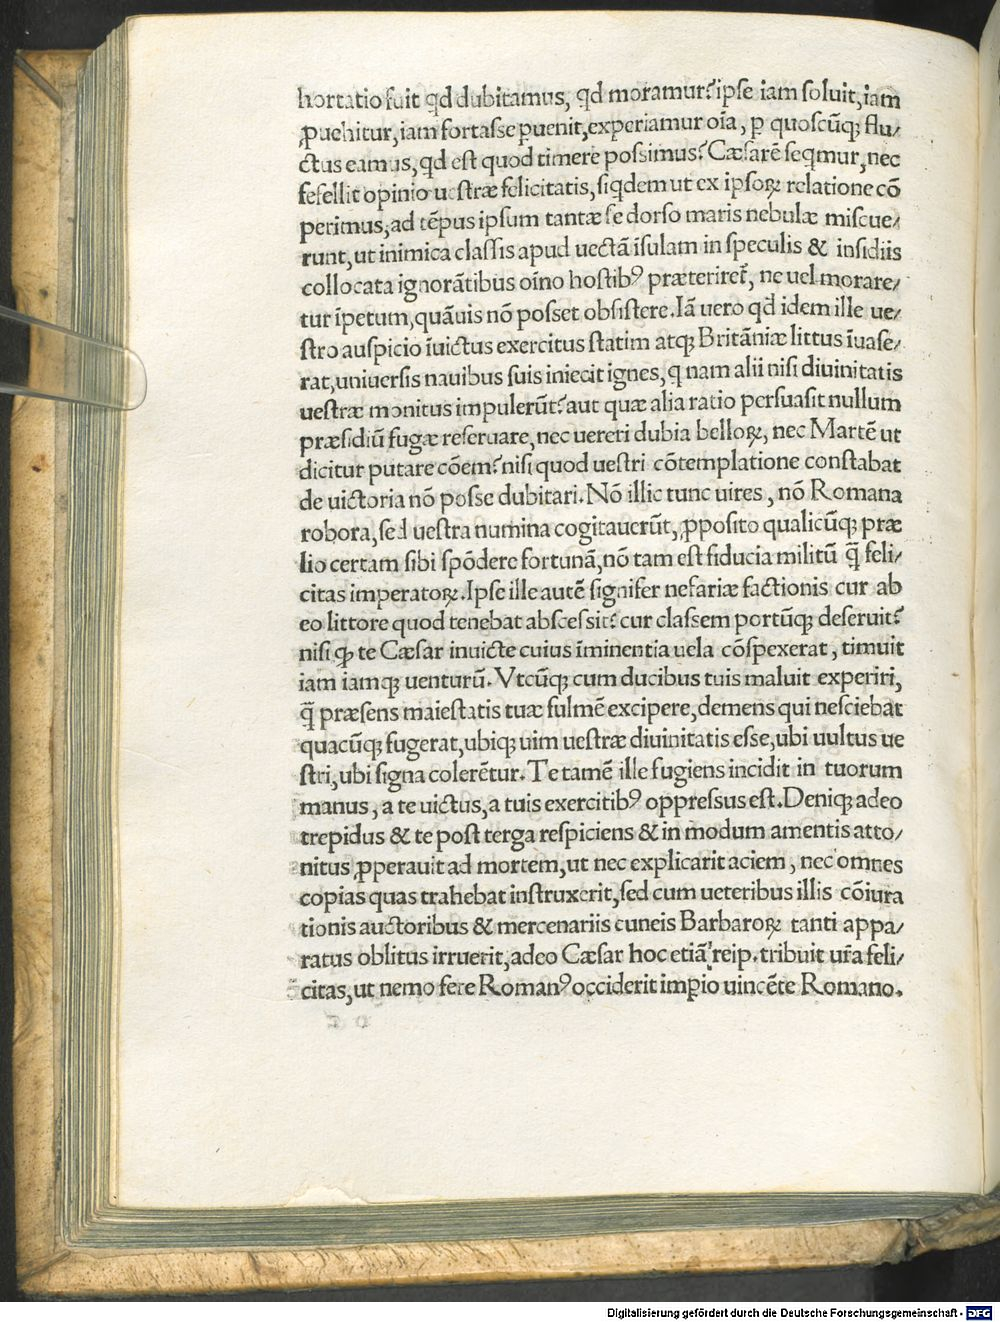 hortatio fuit qd dubitamus, qd moramur? ipse iam soluit, iam
ꝓuehitur, iam fortasse puenit, experiamur oīa, ꝑ quoscūqꝫ flu/
ctus eamus, qd est quod timere possimus? Cæsarē seqmur, nec
fefellit opinio uestræ felicitatis, siqdem ut ex ipsoꝝ relatione cō
perimus, ad tēpus ipsum tantæ se dorso maris nebulæ miscue/
runt, ut inimica classis apud uectā isulam in speculis & insidiis
collocata ignorātibus oīno hostibꝰ præteriret̄, ne uel morare/
tur īpetum, quāuis nō posset obsistere. Iā uero qd idem ille ue/
stro auspicio īuictus exercitus statim atqꝫ Britāniæ littus īuase/
rat, uniuersis nauibus suis iniecit ignes, q nam alii nisi diuinitatis
uestræ monitus impulerūt? aut quæ alia ratio persuasit nullum
præsidiū fugæ reseruare, nec uereri dubia belloꝝ, nec Martē ut
dicitur putare cōem? nisi quod uestri cōtemplatione constabat
de uictoria nō posse dubitari. Nō illic tunc uires, nō Romana
robora, sed uestra numina cogitauerūt, ꝓposito qualicūqꝫ præ
lio certam sibi spōdere fortunā, nō tam est fiducia militū q̄ feli/
citas imperatoꝝ. Ipse ille autē signifer nefariæ factionis cur ab
eo littore quod tenebat abscessit? cur classem portūqꝫ deseruit?
nisi ꝙ te Cæsar inuicte cuius īminentia uela cōspexerat, timuit
iam iamqꝫ uenturū. Vtcūqꝫ cum ducibus tuis maluit experiri,
q̄ præsens maiestatis tuæ fulmē excipere, demens qui nesciebat
quacūqꝫ fugerat, ubiqꝫ uim uestræ diuinitatis esse, ubi uultus ue
stri, ubi signa colerētur. Te tamē ille fugiens incidit in tuorum
manus, a te uictus, a tuis exercitibꝰ oppressus est. Deniqꝫ adeo
trepidus & te post terga respiciens & in modum amentis atto/
nitus ꝓperauit ad mortem, ut nec explicarit aciem, nec omnes
copias quas trahebat instruxerit, sed cum ueteribus illis cōiura
tionis auctoribus & mercenariis cuneis Barbaroꝝ tanti appa/
ratus oblitus irruerit, adeo Cæsar hoc etiā reip. tribuit ur̄a feli/
citas, ut nemo fere Romanꝰ occiderit impio uincēte Romano.
Digitalisierung gefördert durch die Deutsche Forschungsgemeinschaft - DFG